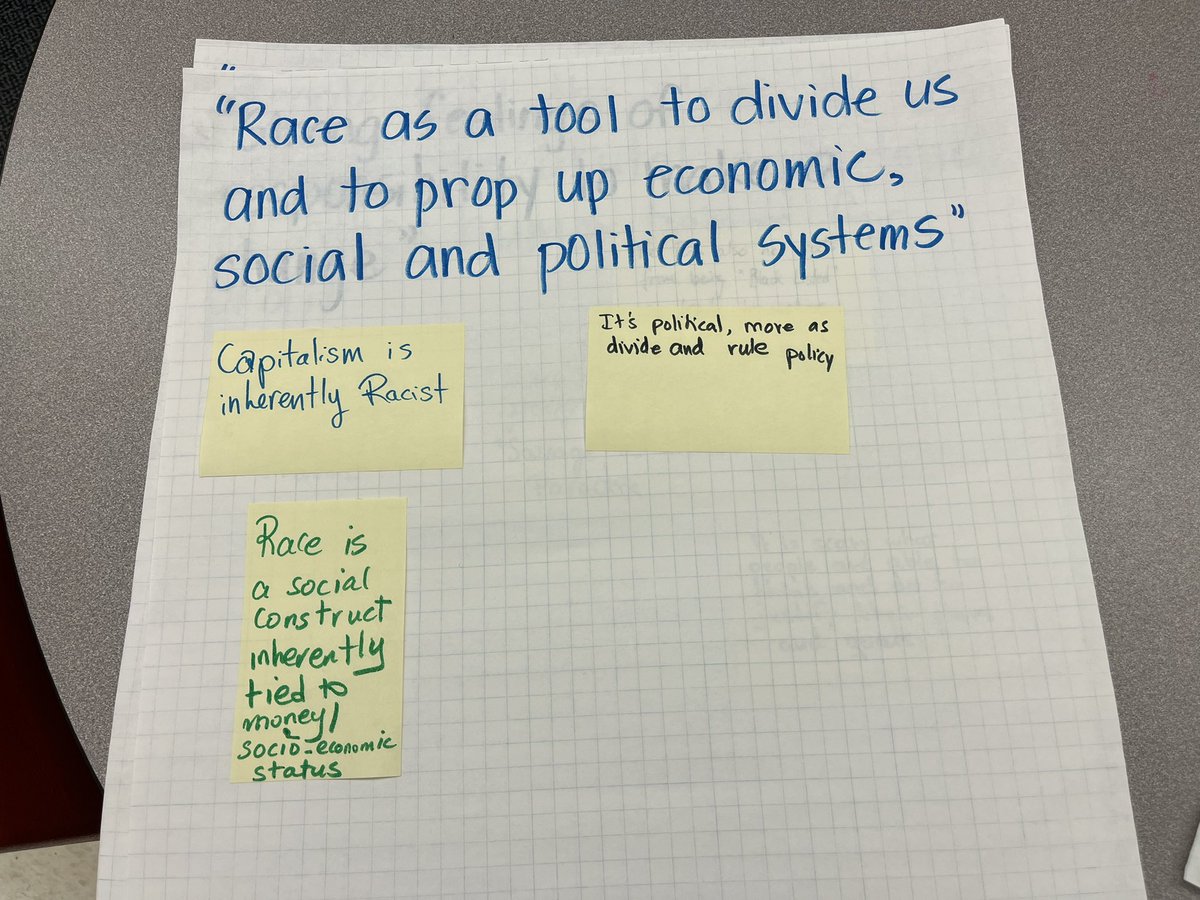 "Race as a tool to divide us
and to prop up economic,
social and political systems"
Capitalism is
inherently Racist
It's political, more as
divide and rule policy
Race is
a social
construct
inherently
tied to
money/
socio-economic
status